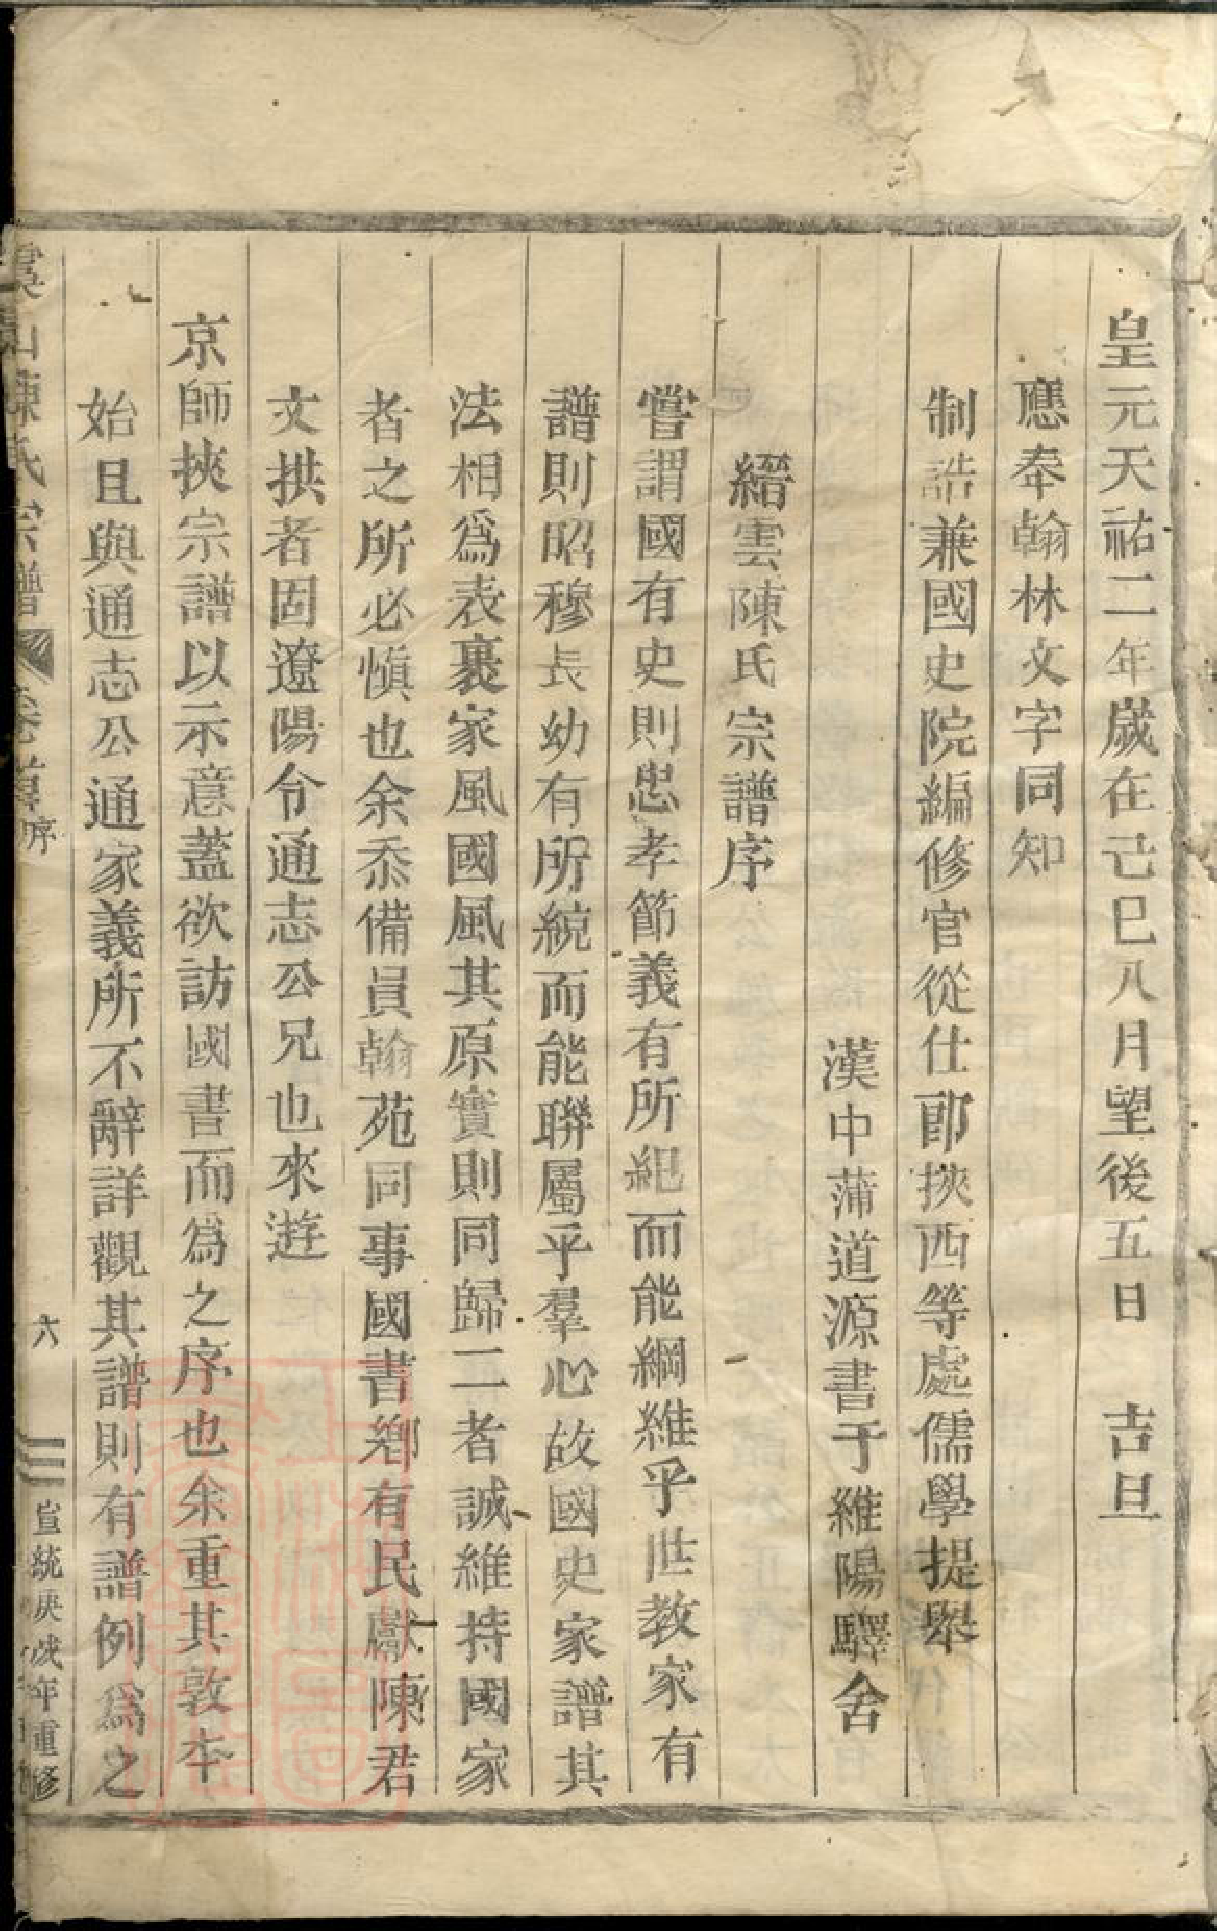 皇元天祐二年歲在己巳八月望後五日　吉旦
應奉翰林文字同知
制誥兼國史院編修官從仕郎挾西等處儒學提舉
漢中蒲道源書于維陽驛舍
縉雲陳氏宗譜序
嘗謂國有史則忠孝節義有所紀而能綱維乎世教家有
譜則昭穆長幼有所統而能聯屬乎羣心故國史家譜其
法相為表裏家風國風其原實則同歸二者誠維持國家
者之所必慎也余忝備員翰苑同事國書鄉有民獻陳君
文拱者固遼陽令通志公兄也來遊
京師挾宗譜以示意蓋欲訪國書而為之序也余重其敦本
始且與通志公通家義所不辭詳觀其譜則有譜例為之
雲山陳氏宗譜　卷首　序　六　宣統庚戌年重修